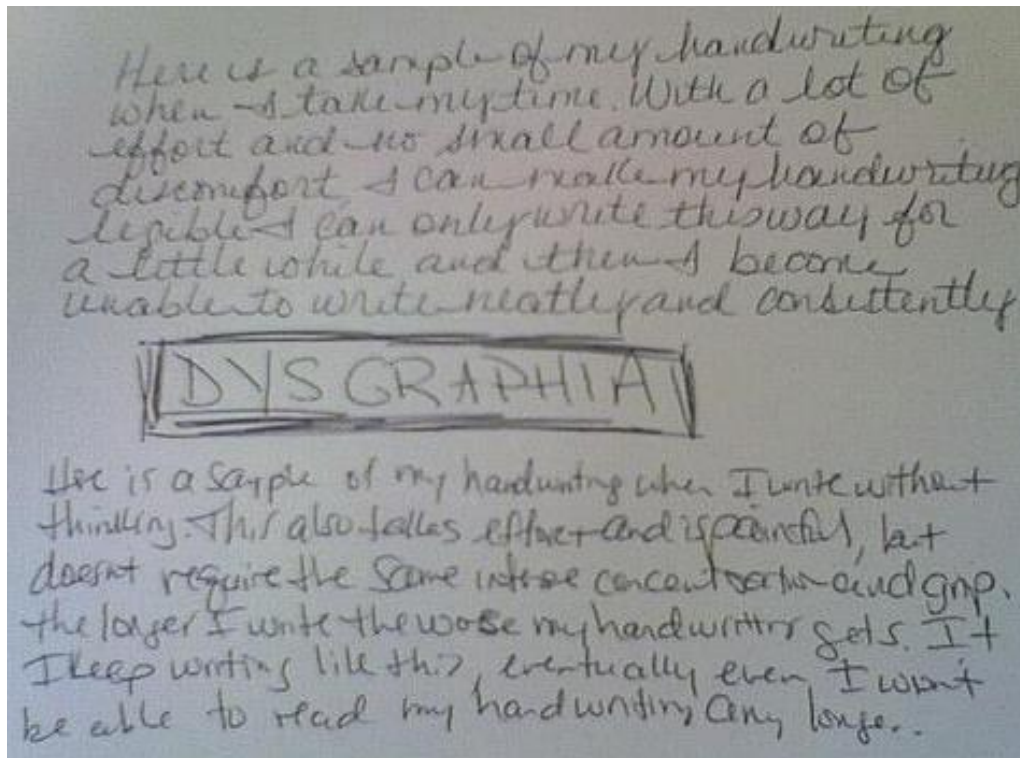 Here is a sample of my handwriting
when I take my time. With a lot of
effort and no small amount of
discomfort, I can make my handwriting
legible. I can only write this way for
a little while and then I become
unable to write neatly and consistently
DYSGRAPHIA
Here is a sample of my handwriting when I write without
thinking. This also takes effort and is painful, but
doesnt require the same intense concentration and grip.
the longer I write the worse my handwriting gets. If
I keep writing like this, eventually even I wont
be able to read my handwriting any longer..